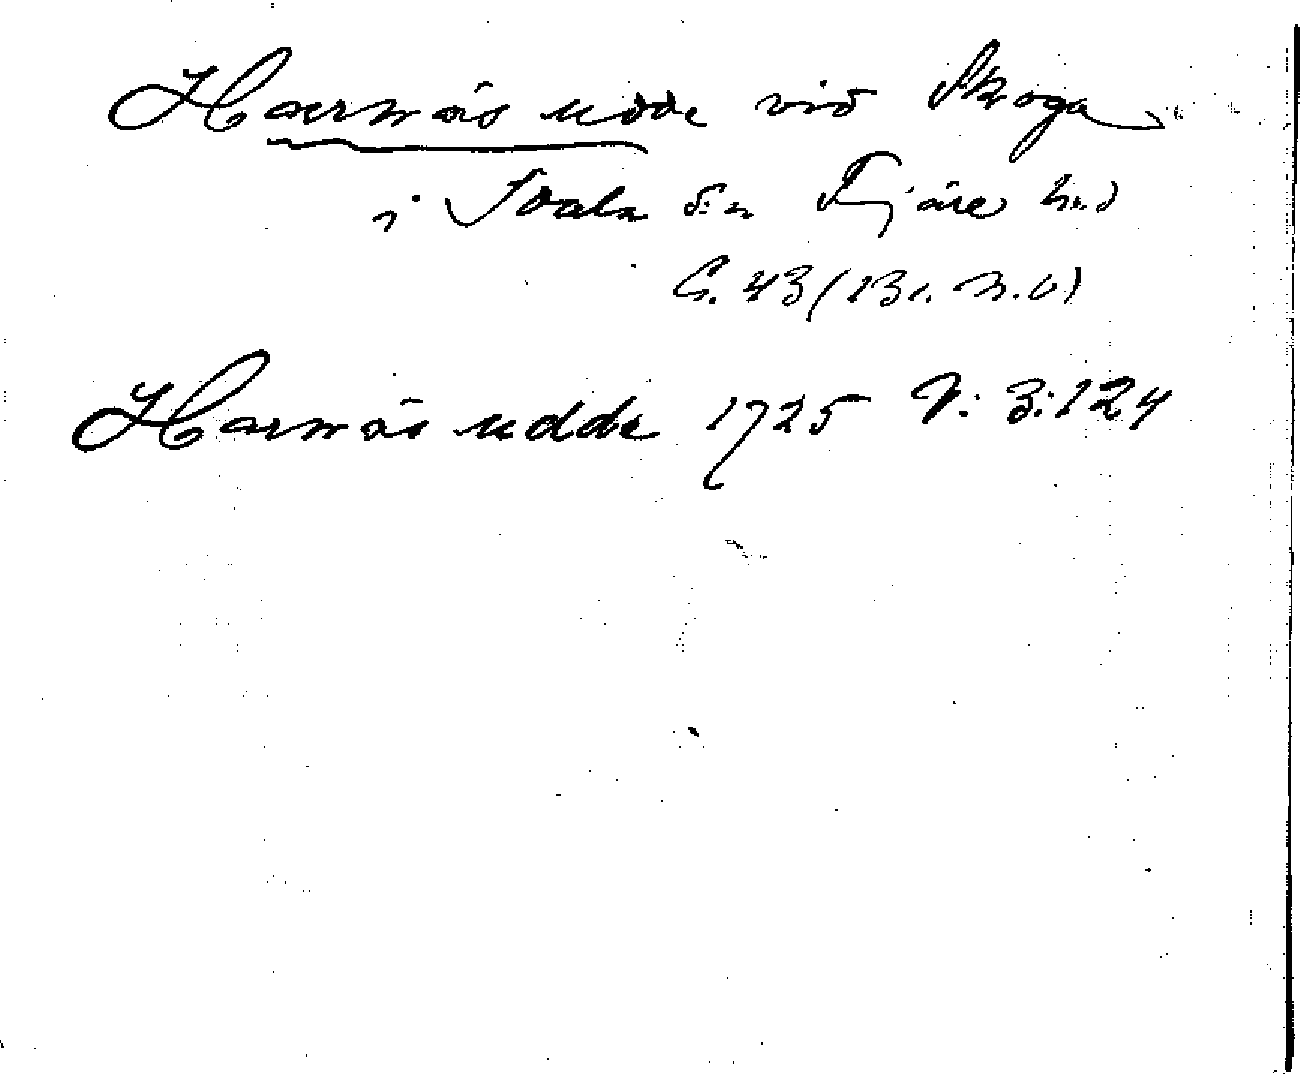 Harnäs udde vid Skoga
i Idala sn Fjäre hd
G. 43 (Bl. N.O)
Harnäs udde 1725 V: 3:124